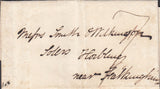 Messrs Smith & Wilkinson
Solrs Horbling
near Falkingham
7